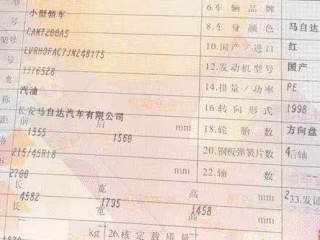 小型轿车 6.车辆品牌
CAM7200A5 8.车身颜色 马自达
LVRHDFAC7JN248175 10.国产/进口 红
3376528 12.发动机型号 国产
汽油 14.排量/功率 PE
称 长安马自达汽车有限公司 16.转向形式 1998
距 前 1555 后 1560 mm 18.轮胎数 方向盘
格 215/45R18 20.钢板弹簧片数 4
距 2700 mm 22.轴数 后轴
寸 长 4582 宽 1795 高 1458 mm 2
长 宽 高 mm
kg 26.核定载质量